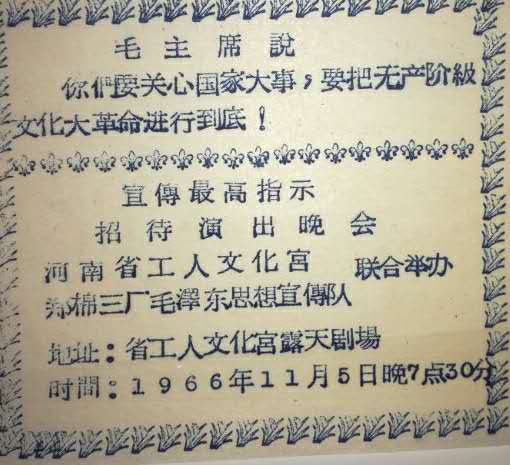 毛主席說
你們要关心国家大事，要把无产阶級
文化大革命进行到底！
宣傳最高指示
招待演出晚会
河南省工人文化宮
郑棉三厂毛澤东思想宣傳队
联合举办
地址：省工人文化宮露天剧場
时間：1966年11月5日晚7点30分